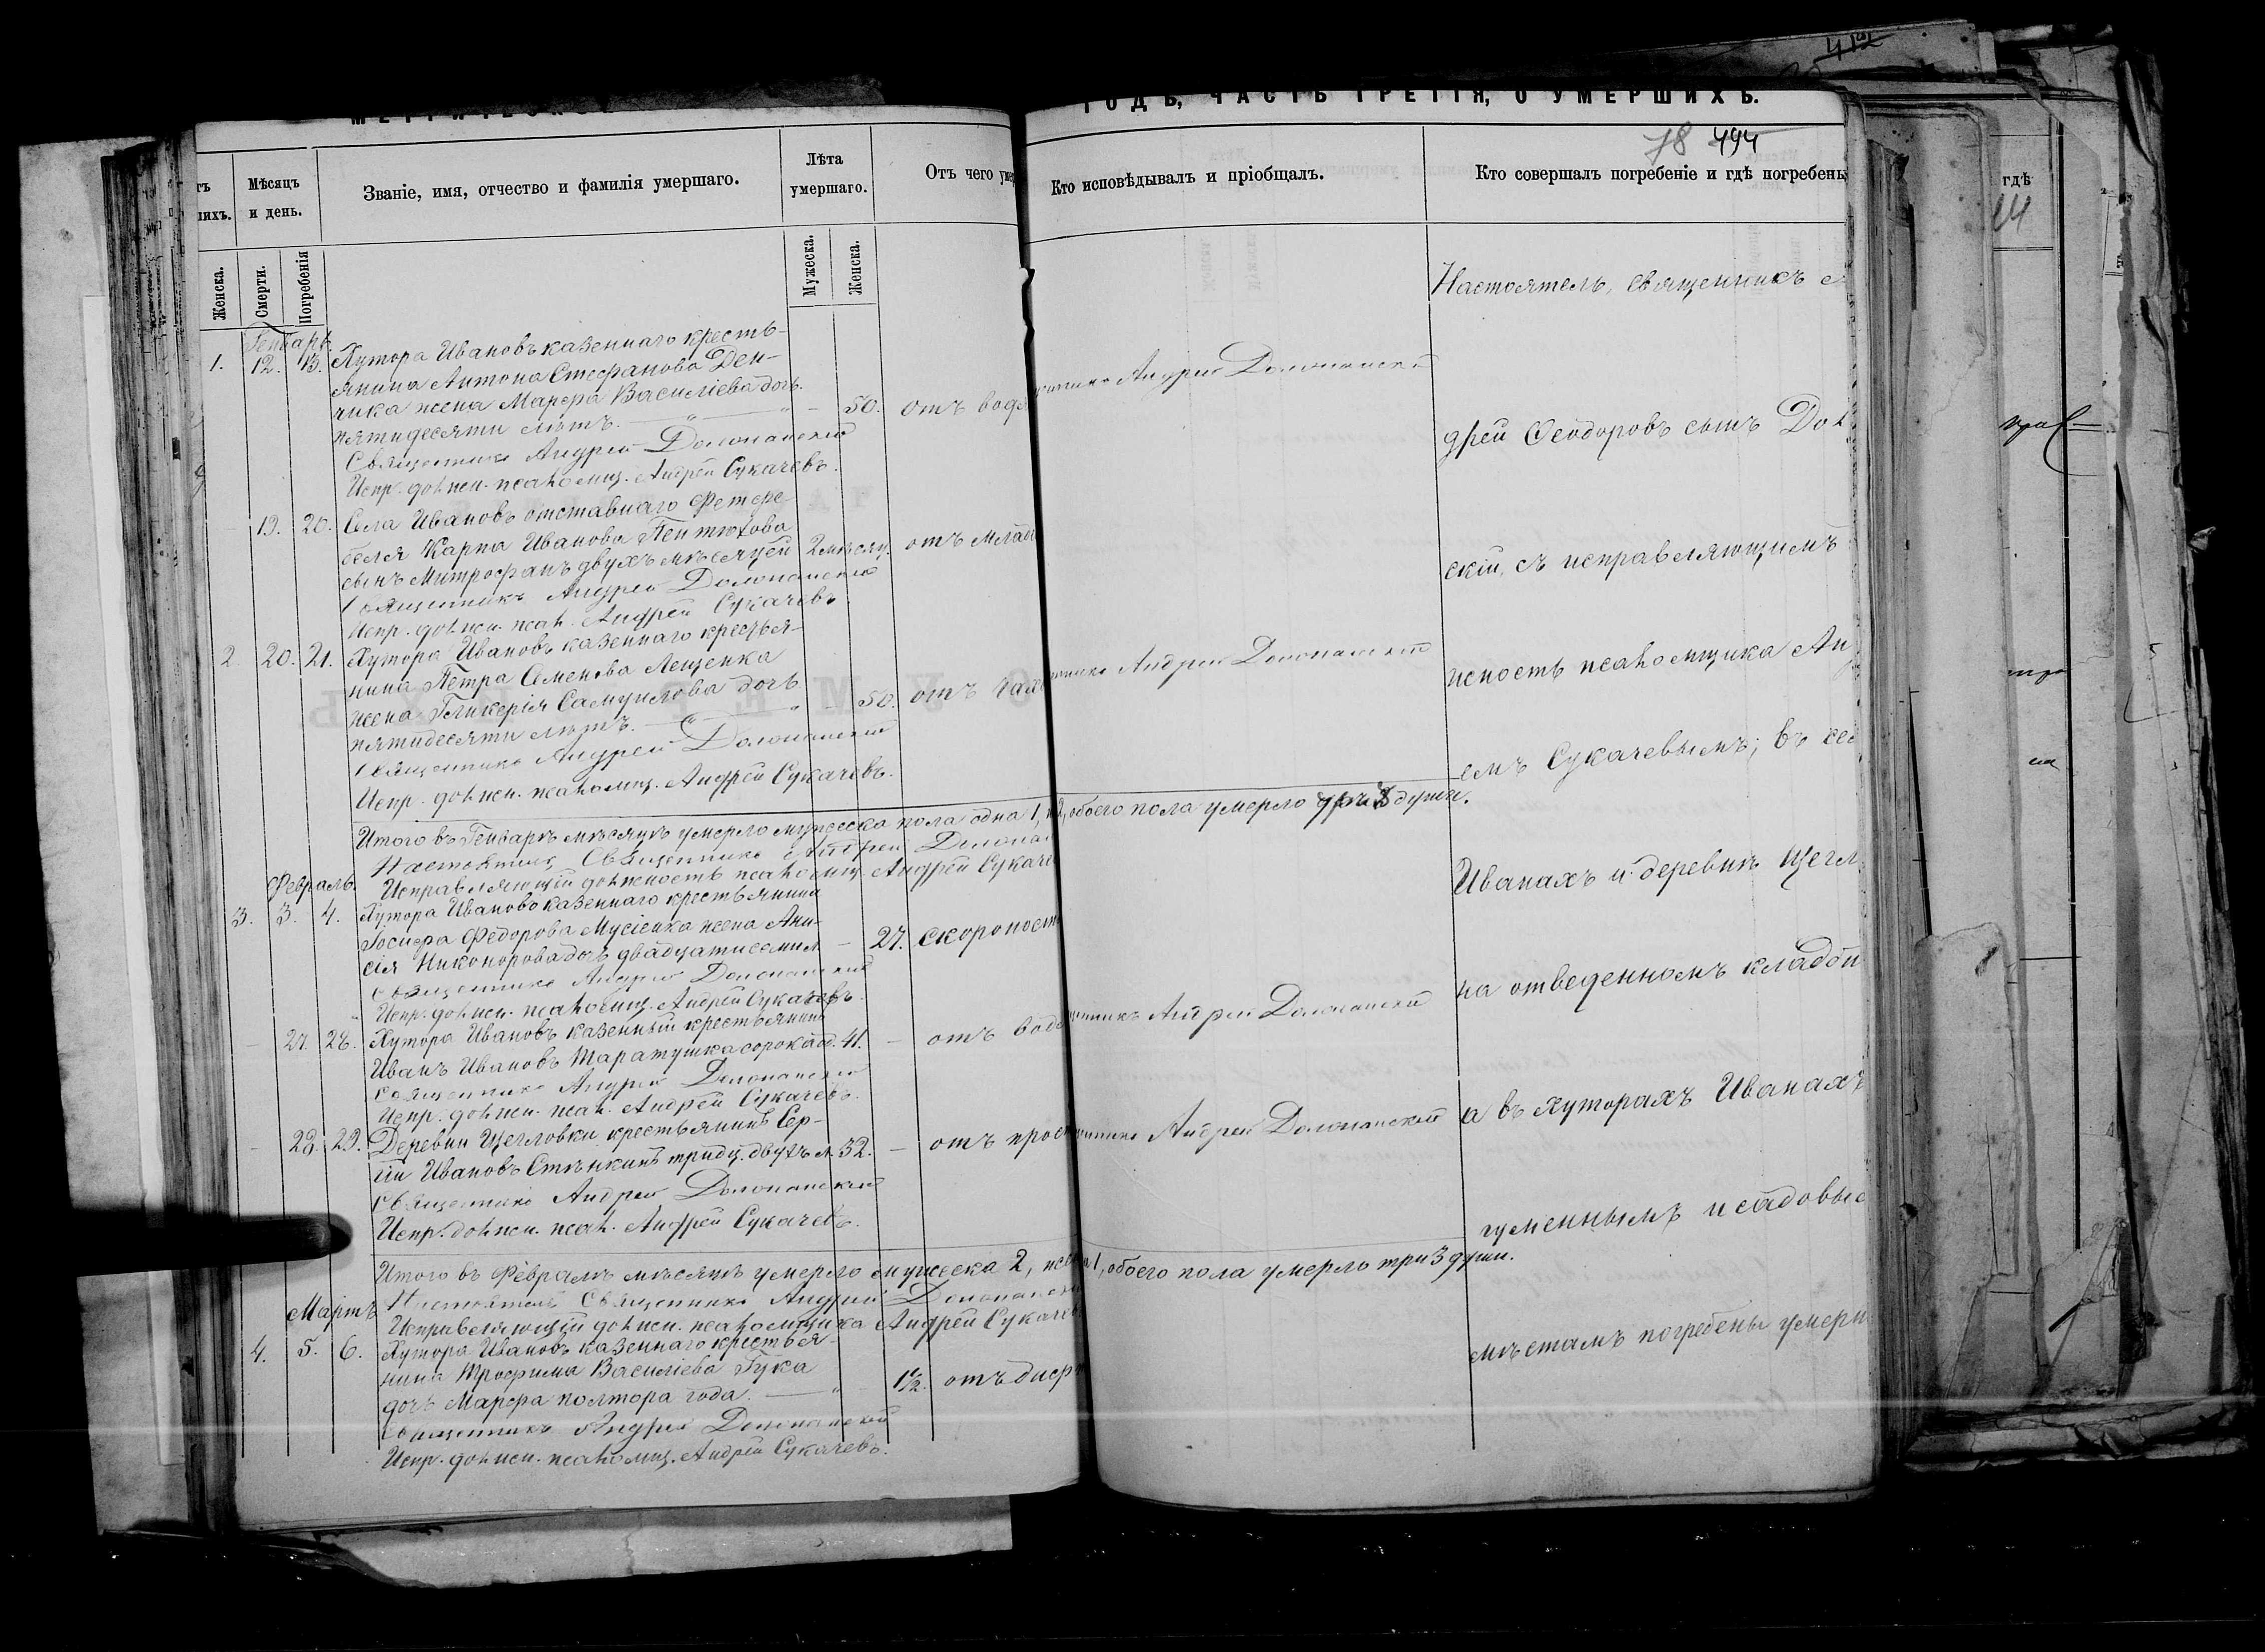 ГОДЪ, ЧАСТЬ ТРЕТІЯ, О УМЕРШИХЪ.
412
78 494
Мѣсяцъ и день.
Званіе, имя, отчество и фамилія умершаго.
Лѣта умершаго.
Отъ чего
Кто исповѣдывалъ и пріобщалъ.
Кто совершалъ погребеніе и гдѣ погребены
гдѣ
Женска.
Смерти.
Погребенія
Мужеска.
Женска.
Генварь.
1. 12. 13. Хутора Ивановъ казеннаго кресть-
янина Антона Стефанова Ден-
чика жена Марѳа Василіева дочь
пятидесяти лѣтъ. — 50. отъ
Священникъ Андрей Долопанскій
Испр. должн. псаломщ. Андрей Сукачевъ.
19. 20. Села Ивановъ отставнаго Фетфе-
беля Карпа Иванова Пентюхова
сынъ Митрофанъ двухъ мѣсяцей 2 мѣсяц. отъ
Священникъ Андрей Долопанскій
Испр. должн. псал. Андрей Сукачевъ.
2 20. 21. Хутора Ивановъ казеннаго крестья-
нина Петра Семенова Лещенка
жена Гликерія Самуилова дочь
пятидесяти лѣтъ. — 50. отъ
Священникъ Андрей Долопанскій
Испр. должн. псаломщ. Андрей Сукачевъ.
Итого въ Генварѣ мѣсяцѣ умерло мужеска пола одна 1, 2, обоего пола умерло три 3 души.
Настоятель Священникъ Андрей
Исправляющій должность псаломщ. Андрей
Февраль.
3. 3. 4. Хутора Ивановъ казеннаго крестьянина
Іосифа Федорова Мусіенка жена Ани-
сія Никонорова дочь двадцати семи л. — 27.
Священникъ Андрей Долопанскій
Испр. должн. псаломщ. Андрей Сукачевъ.
— 27. 28. Хутора Ивановъ казенный крестьянинъ
Иванъ Ивановъ Таратушка сорока од. 41. — отъ
Священникъ Андрей Долопанскій
Испр. должн. псал. Андрей Сукачевъ.
— 28. 29. Деревни Щегловки крестьянинъ Сер-
гій Ивановъ Стѣнкинъ тридц. двухъ л. 32. — отъ
Священникъ Андрей Долопанскій
Испр. должн. псал. Андрей Сукачевъ.
Итого въ Февралѣ мѣсяцѣ умерло мужеска 2, 1, обоего пола умерло три 3 души.
Настоятель Священникъ Андрей
Исправляющій должн. псаломщика Андрей
Мартъ
4. 5. 6. Хутора Ивановъ казеннаго крестья-
нина Трофима Василіева Гука
дочь Марѳа полтора года. — 1½. отъ
Священникъ Андрей Долопанскій
Испр. должн. псаломщ. Андрей Сукачевъ.
Андрей Долопанскій
Андрей Долопанскій
Андрей Долопанскій
Андрей Долопанскій
Настоятель, священникъ
дрей Ѳеодоровъ сынъ
скій, съ исправляющимъ
псаломщика
емъ Сукачевымъ; въ
Иванахъ и деревнѣ
на отведенномъ
а въ хуторахъ Иванахъ
гуменнымъ и
мѣстамъ погребены